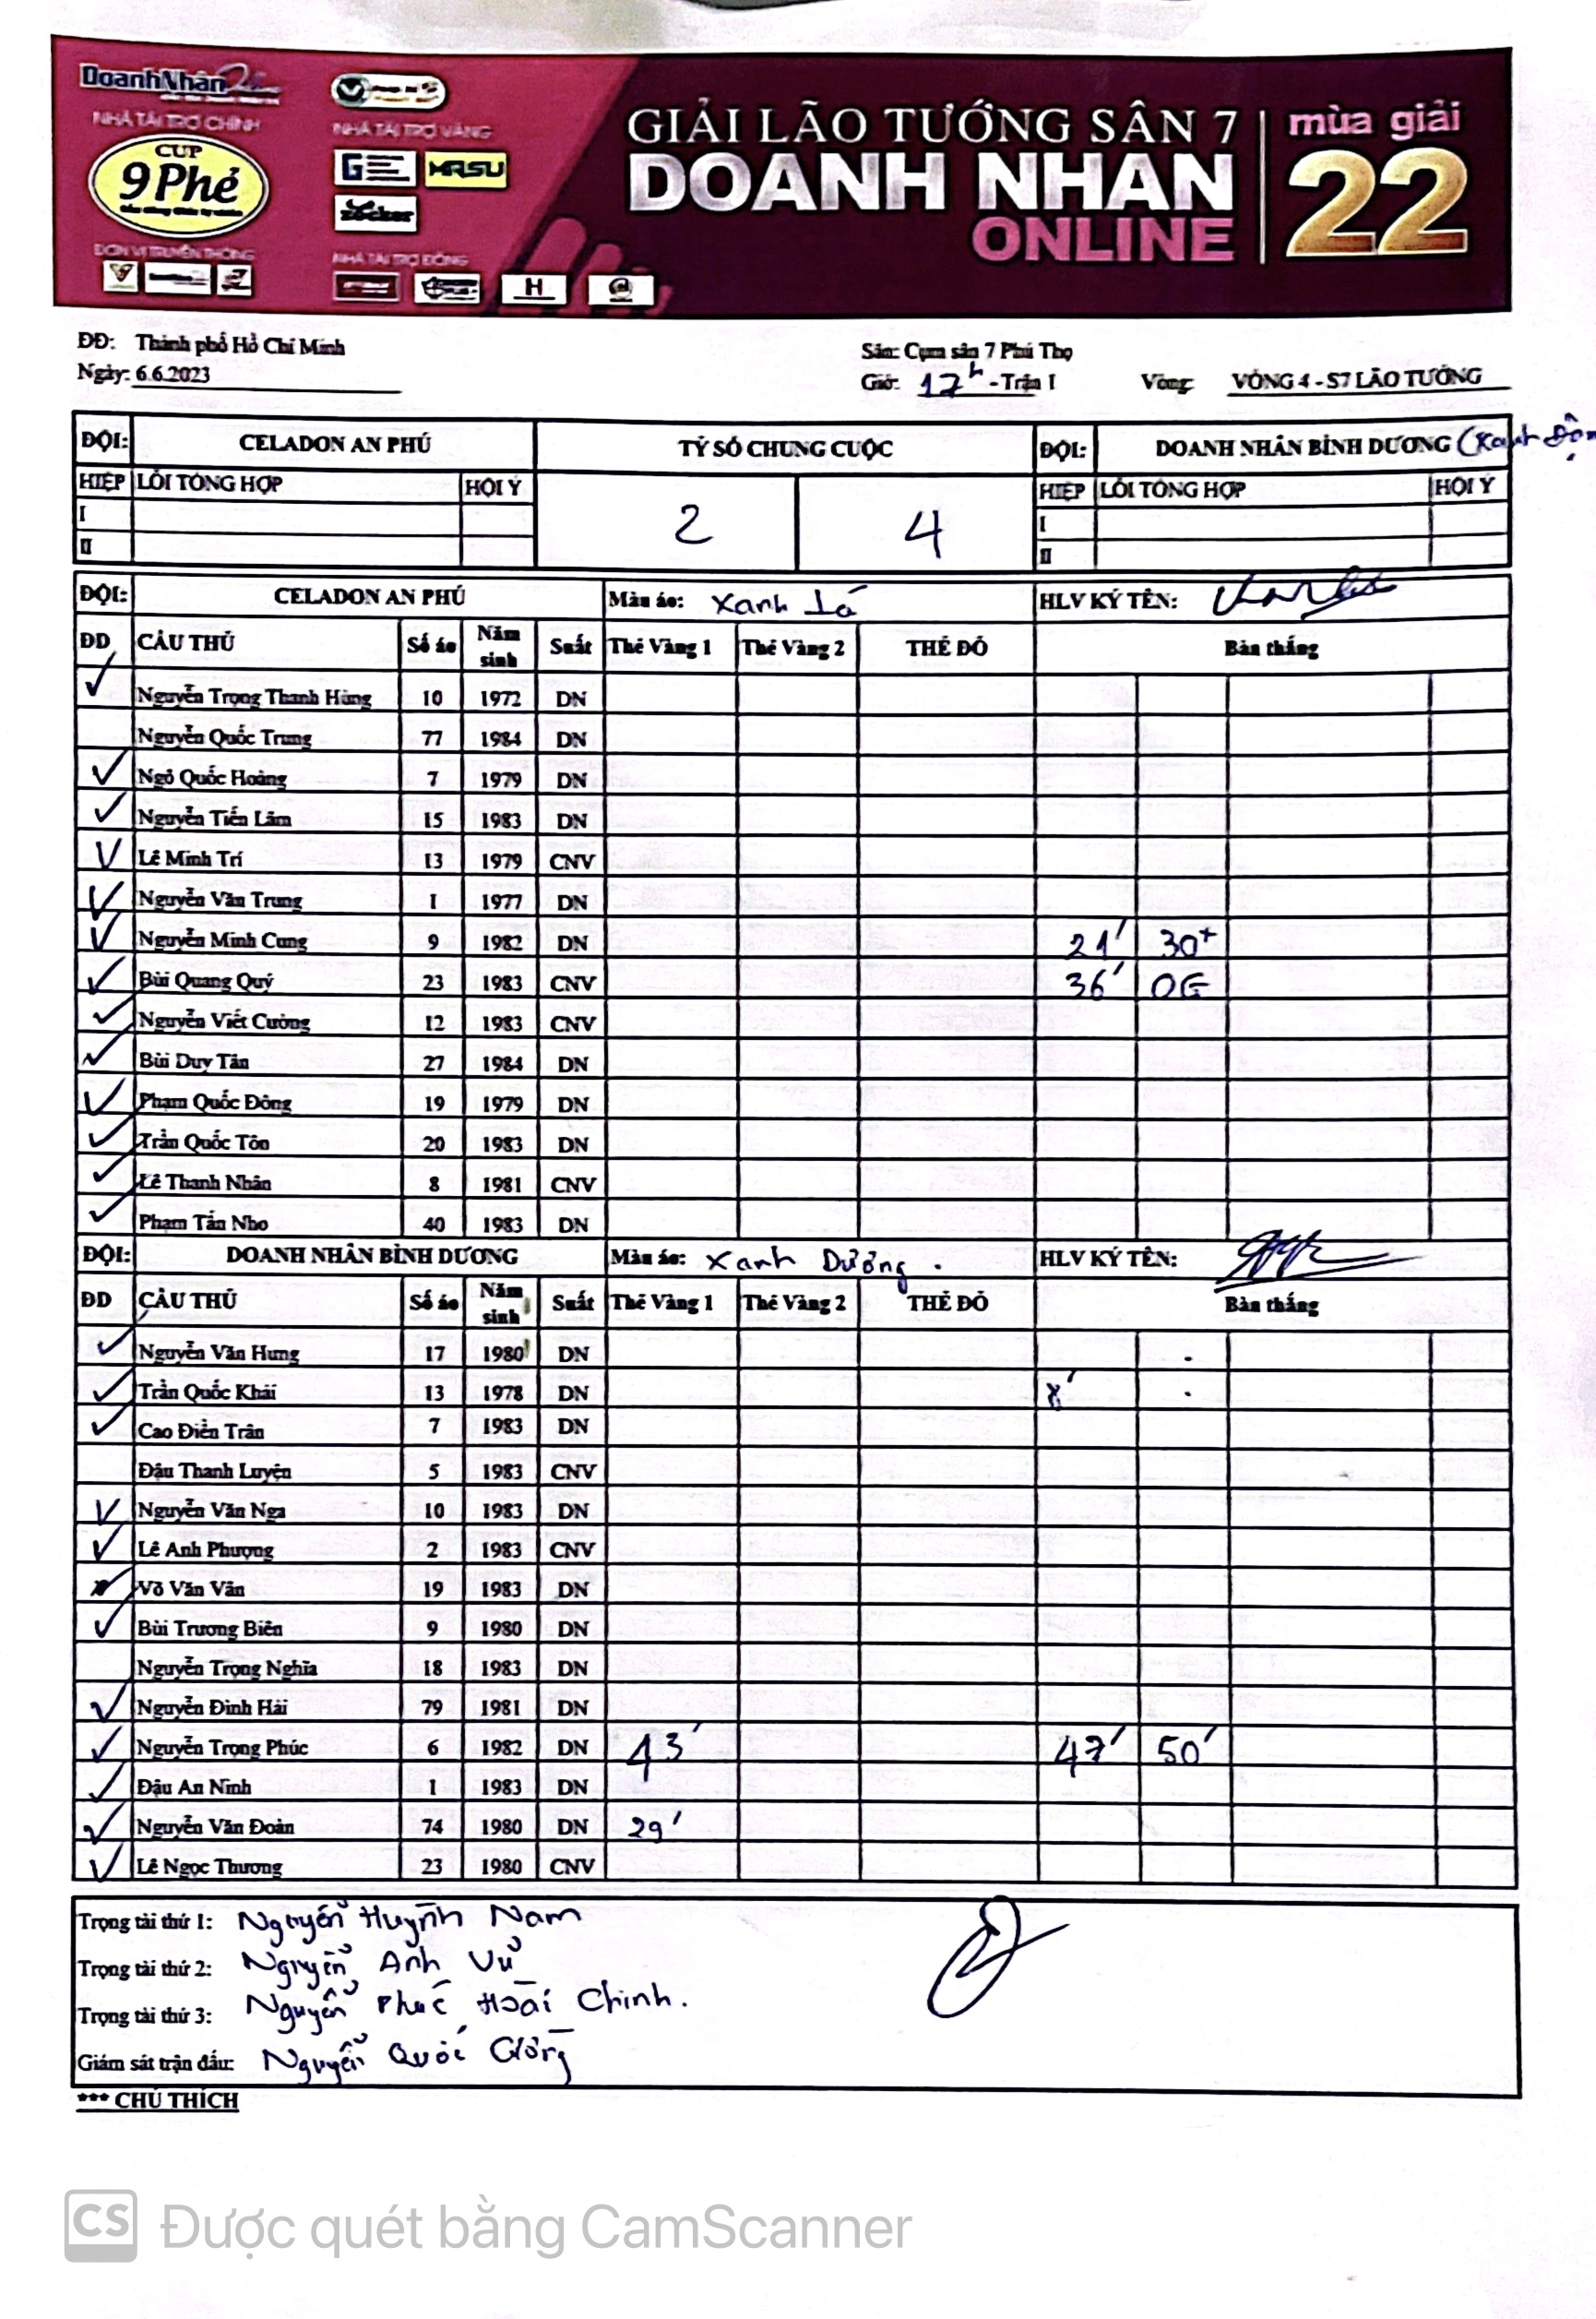 DoanhNhân
NHÀ TÀI TRỢ CHÍNH
CUP
9 Phẻ
ĐƠN VỊ TRUYỀN THÔNG
NHÀ TÀI TRỢ VÀNG
MASU
Zocker
NHÀ TÀI TRỢ ĐỒNG
H
GIẢI LÃO TƯỚNG SÂN 7
DOANH NHAN
ONLINE
mùa giải
22
ĐĐ: Thành phố Hồ Chí Minh
Sân: Cụm sân 7 Phú Thọ
Ngày: 6.6.2023
Giờ: 17h - Trận 1 Vòng: VÒNG 4 - S7 LÃO TƯỚNG
ĐỘI: CELADON AN PHÚ TỶ SỐ CHUNG CUỘC ĐỘI: DOANH NHÂN BÌNH DƯƠNG
HIỆP LỖI TỔNG HỢP HỘI Ý 2 4 HIỆP LỖI TỔNG HỢP HỘI Ý
I I
II II
ĐỘI: CELADON AN PHÚ Màu áo: Xanh Lá HLV KÝ TÊN:
ĐD CẦU THỦ Số áo Năm sinh Suất Thẻ Vàng 1 Thẻ Vàng 2 THẺ ĐỎ Bàn thắng
✓ Nguyễn Trọng Thanh Hùng 10 1972 DN
Nguyễn Quốc Trung 77 1984 DN
✓ Ngô Quốc Hoàng 7 1979 DN
✓ Nguyễn Tiến Lãm 15 1983 DN
✓ Lê Minh Trí 13 1979 CNV
✓ Nguyễn Văn Trung 1 1977 DN
✓ Nguyễn Minh Cung 9 1982 DN 21' 30+
✓ Bùi Quang Quý 23 1983 CNV 36' OG
✓ Nguyễn Viết Cường 12 1983 CNV
✓ Bùi Duy Tân 27 1984 DN
✓ Phạm Quốc Đông 19 1979 DN
✓ Trần Quốc Tôn 20 1983 DN
✓ Lê Thanh Nhân 8 1981 CNV
✓ Phạm Tấn Nho 40 1983 DN
ĐỘI: DOANH NHÂN BÌNH DƯƠNG Màu áo: Xanh Dương. HLV KÝ TÊN:
ĐD CẦU THỦ Số áo Năm sinh Suất Thẻ Vàng 1 Thẻ Vàng 2 THẺ ĐỎ Bàn thắng
✓ Nguyễn Văn Hưng 17 1980 DN
✓ Trần Quốc Khải 13 1978 DN
✓ Cao Điền Trân 7 1983 DN
Đậu Thanh Luyện 5 1983 CNV
✓ Nguyễn Văn Nga 10 1983 DN
✓ Lê Anh Phượng 2 1983 CNV
Võ Văn Vân 19 1983 DN
✓ Bùi Trương Biên 9 1980 DN
Nguyễn Trọng Nghĩa 18 1983 DN
✓ Nguyễn Đình Hải 79 1981 DN
✓ Nguyễn Trọng Phúc 6 1982 DN 43' 47' 50'
✓ Đậu An Ninh 1 1983 DN
✓ Nguyễn Văn Đoàn 74 1980 DN 29'
✓ Lê Ngọc Thương 23 1980 CNV
Trọng tài thứ 1: Nguyễn Huỳnh Nam
Trọng tài thứ 2: Nguyễn Anh Vũ
Trọng tài thứ 3: Nguyễn Phúc Hoài Chinh.
Giám sát trận đấu: Nguyễn Quốc
*** CHÚ THÍCH
CS Được quét bằng CamScanner